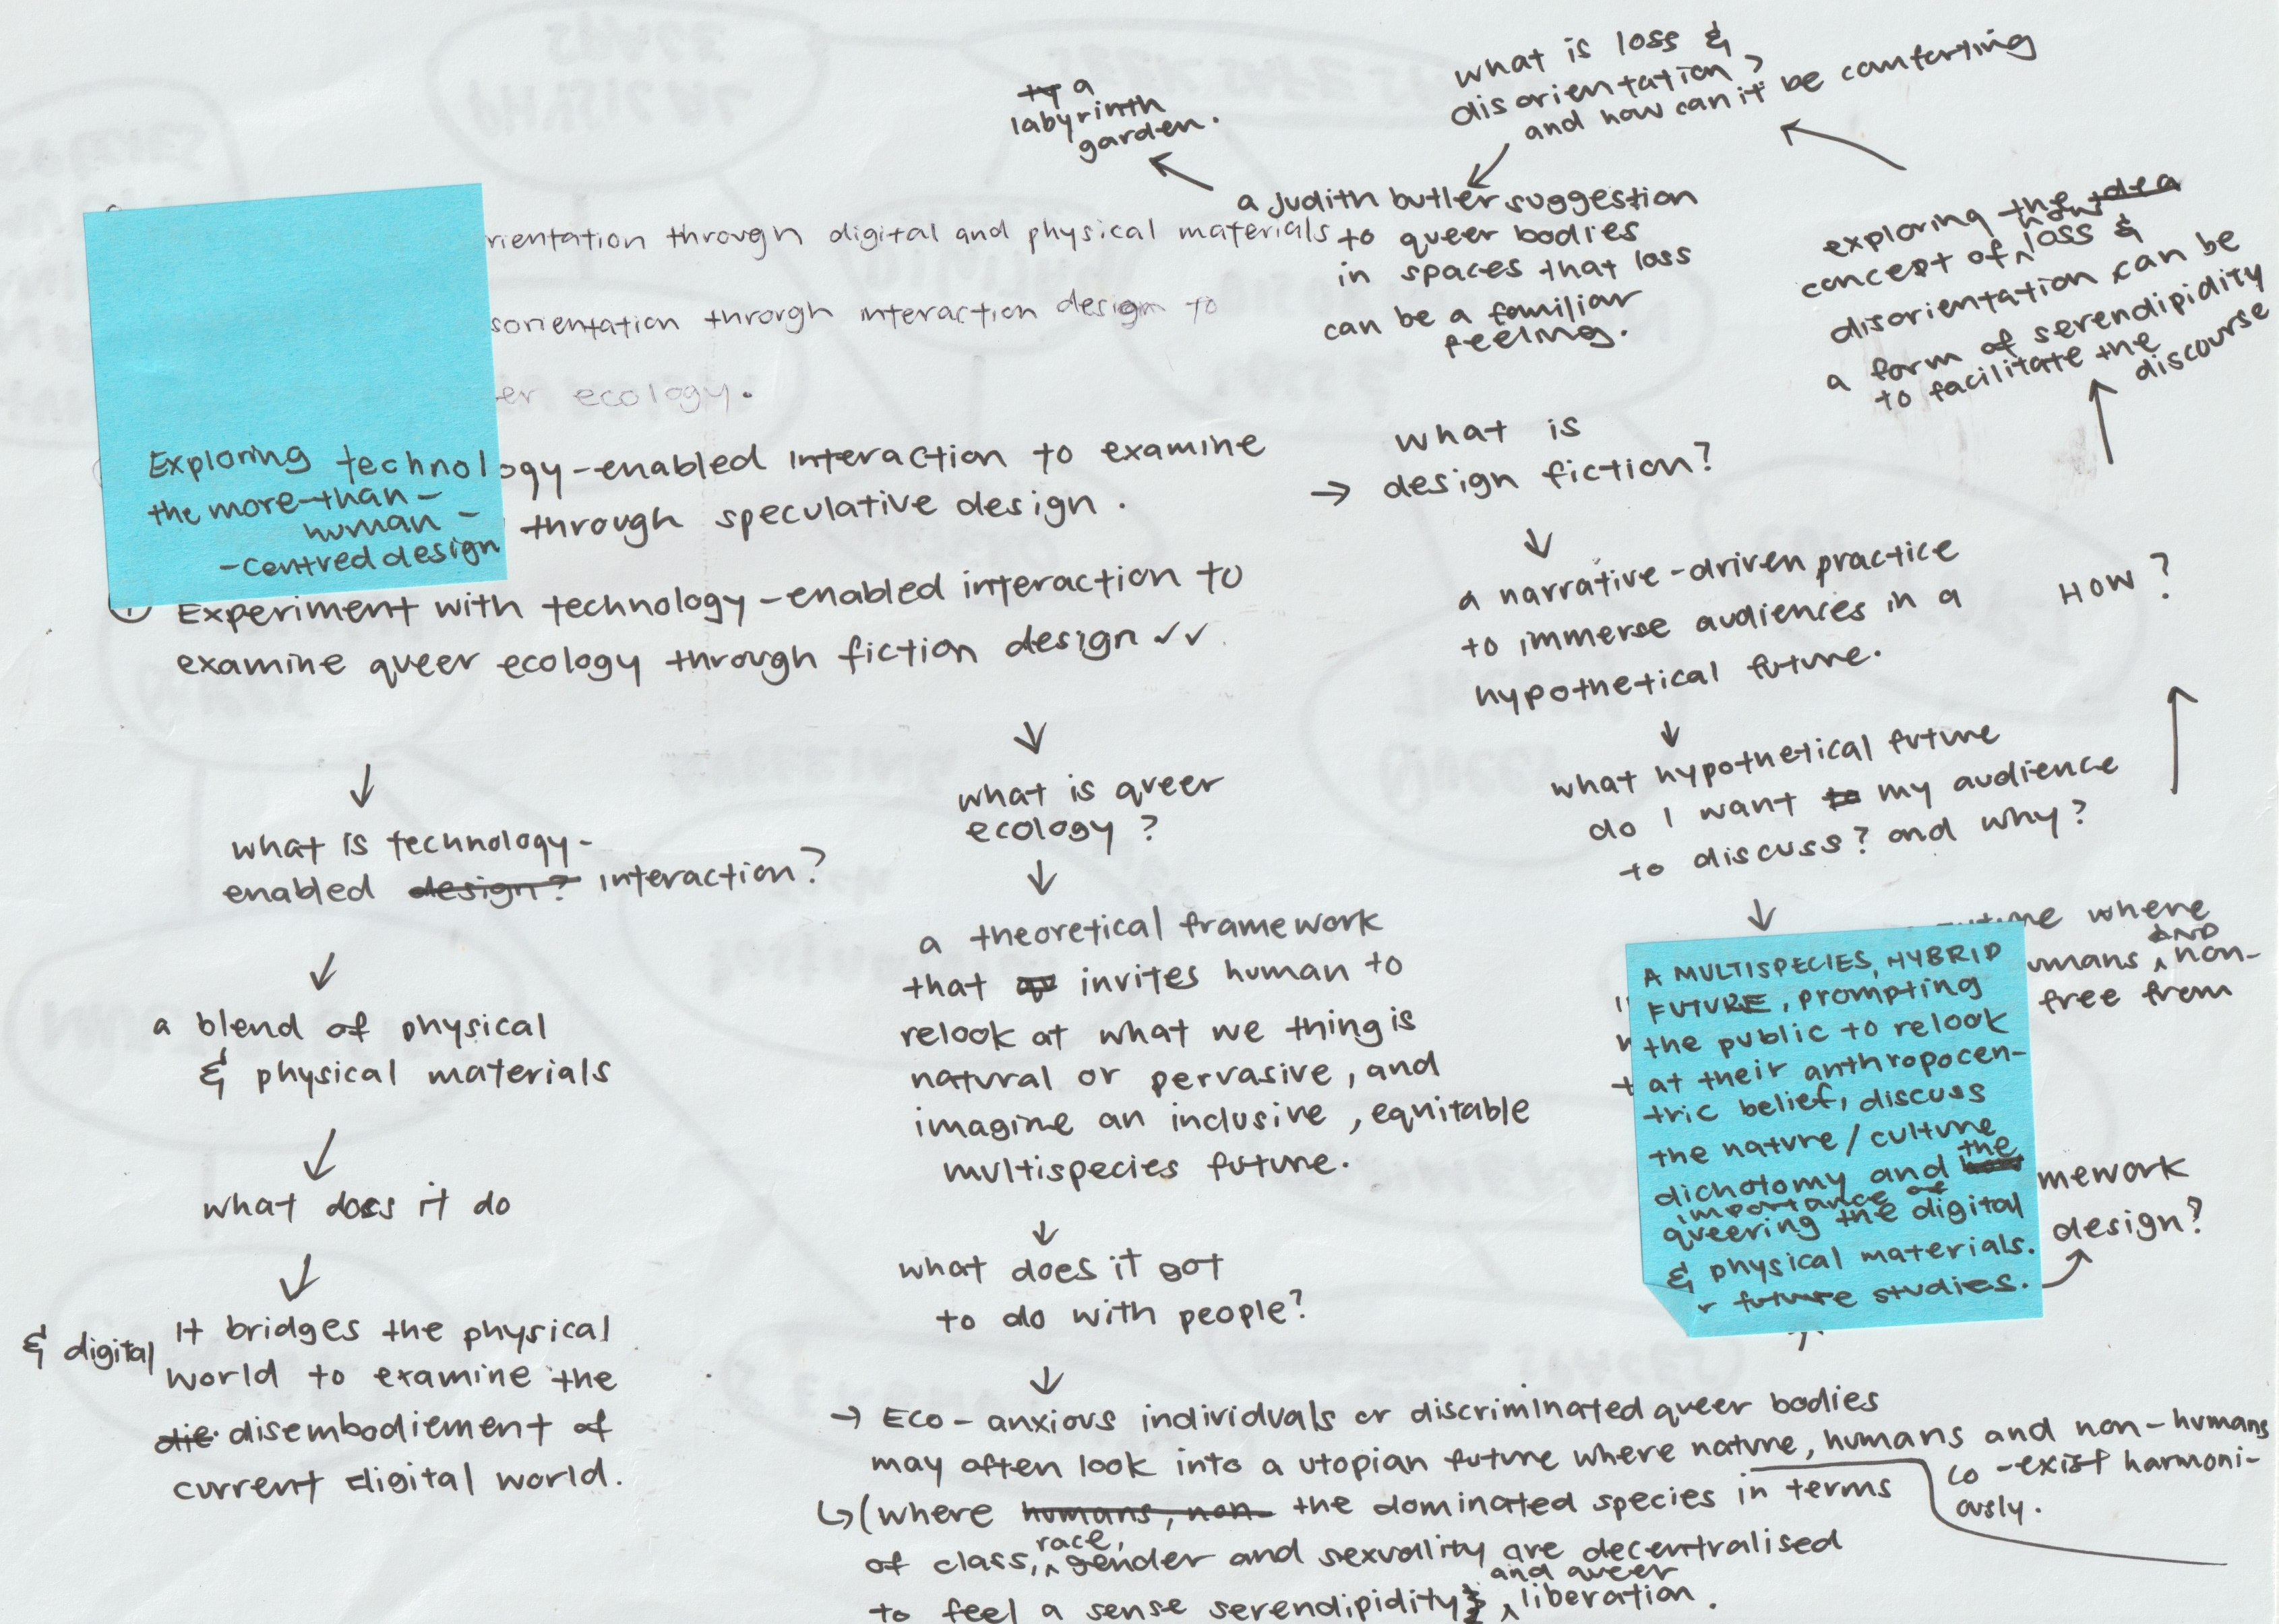 rientation through digital and physical materials
sorientation through interaction design to
er ecology.
Exploring technology-enabled interaction to examine
the more-than-
human-
-centred design
through speculative design.
Experiment with technology-enabled interaction to
examine queer ecology through fiction design ✓✓
↓
what is technology-
enabled design? interaction?
↓
a blend of physical
& physical materials
↓
what does it do
↓
& digital
It bridges the physical
world to examine the
die disembodiement of
current digital world.
↓
what is queer
ecology?
↓
a theoretical framework
that invites human to
relook at what we thing is
natural or pervasive, and
imagine an inclusive, equitable
multispecies future.
↓
what does it got
to do with people?
↓
→ Eco-anxious individuals or discriminated queer bodies
may often look into a utopian future where nature, humans and non-humans
co-exist harmoni-
ously.
↳ (where humans, non- the dominated species in terms
of class, race, gender and sexuality are decentralised
to feel a sense serendipidity & and queer liberation.
→ what is
design fiction?
↓
a narrative-driven practice
to immerse audiences in a
hypothetical future.
↓
what hypothetical future
do I want to my audience
to discuss? and why?
↓
where
umans AND non-
free from
A MULTISPECIES, HYBRID
FUTURE, prompting
the public to relook
at their anthropocen-
tric belief, discuss
the nature/culture
dichotomy and how the
importance of
queering the digital
& physical materials.
r future studies.
mework
design?
HOW?
exploring the idea
concept of how loss &
disorientation can be
a form of serendipidity
to facilitate the
discourse
what is loss &
disorientation?
and how can it be comforting
a judith butler suggestion
to queer bodies
in spaces that loss
can be a familiar
feeling.
ty a
labyrinth
garden.